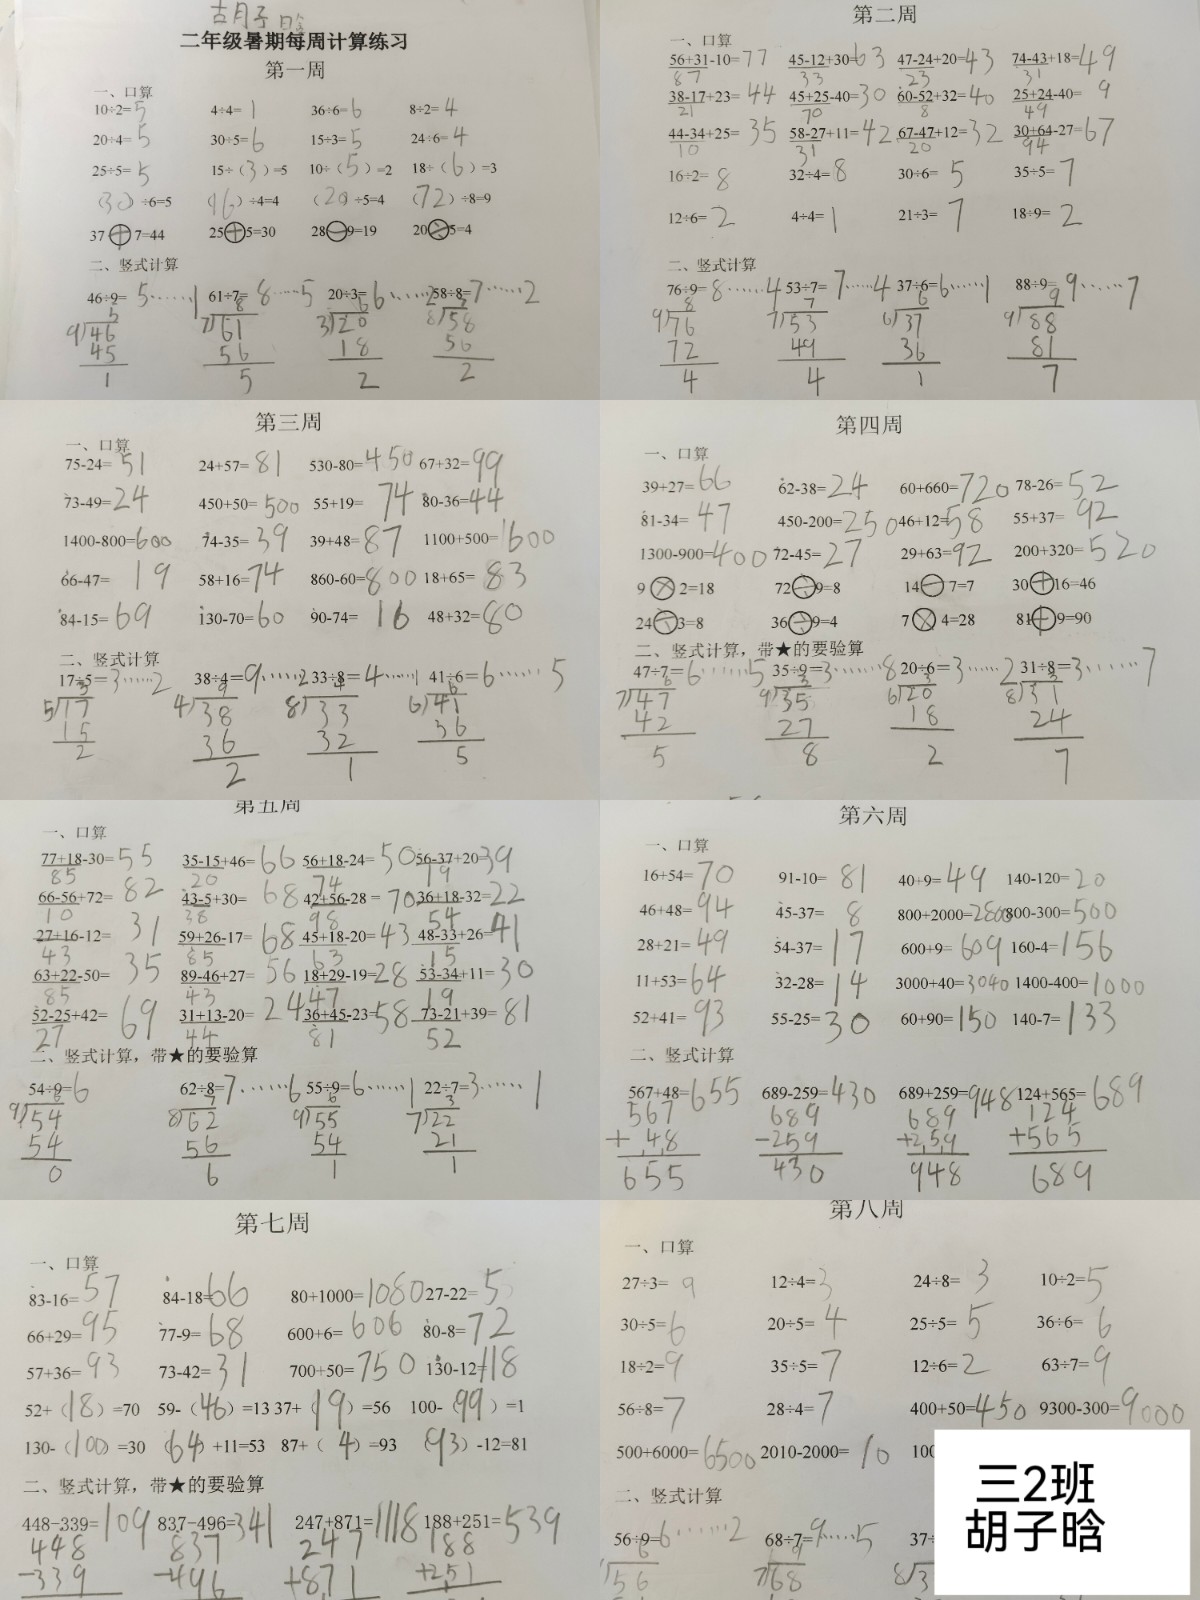 古月子日含
二年级暑期每周计算练习
第一周
一、口算
10÷2=5 4÷4=1 36÷6=6 8÷2=4
20÷4=5 30÷5=6 15÷3=5 24÷6=4
25÷5=5 15÷（3）=5 10÷（5）=2 18÷（6）=3
（30）÷6=5 （16）÷4=4 （20）÷5=4 （72）÷8=9
37+7=44 25+5=30 28-9=19 20÷5=4
二、竖式计算
46÷9=5……1 61÷7=8……5 20÷3=6……2 58÷8=7……2
5 8 6 7
9)46 7)61 3)20 8)58
45 56 18 56
1 5 2 2
第二周
一、口算
56+31-10=77 45-12+30=63 47-24+20=43 74-43+18=49
87 33 23 31
38-17+23=44 45+25-40=30 60-52+32=40 25+24-40=9
21 70 8 49
44-34+25=35 58-27+11=42 67-47+12=32 30+64-27=67
10 31 20 94
16÷2=8 32÷4=8 30÷6=5 35÷5=7
12÷6=2 4÷4=1 21÷3=7 18÷9=2
二、竖式计算
76÷9=8……4 53÷7=7……4 37÷6=6……1 88÷9=9……7
8 7 6 9
9)76 7)53 6)37 9)88
72 49 36 81
4 4 1 7
第三周
一、口算
75-24=51 24+57=81 530-80=450 67+32=99
73-49=24 450+50=500 55+19=74 80-36=44
1400-800=600 74-35=39 39+48=87 1100+500=1600
66-47=19 58+16=74 860-60=800 18+65=83
84-15=69 130-70=60 90-74=16 48+32=80
二、竖式计算
17÷5=3……2 38÷4=9……2 33÷8=4……1 41÷6=6……5
3 9 4 6
5)17 4)38 8)33 6)41
15 36 32 36
2 2 1 5
第四周
一、口算
39+27=66 62-38=24 60+660=720 78-26=52
81-34=47 450-200=250 46+12=58 55+37=92
1300-900=400 72-45=27 29+63=92 200+320=520
9×2=18 72÷9=8 14-7=7 30+16=46
24÷3=8 36÷9=4 7×4=28 81+9=90
二、竖式计算，带★的要验算
47÷7=6……5 35÷9=3……8 20÷6=3……2 31÷8=3……7
6 3 3 3
7)47 9)35 6)20 8)31
42 27 18 24
5 8 2 7
第五周
一、口算
77+18-30=55 35-15+46=66 56+18-24=50 56-37+20=39
85 20 74 19
66-56+72=82 43-5+30=68 42+56-28=70 36+18-32=22
10 38 98 54
27+16-12=31 59+26-17=68 45+18-20=43 48-33+26=41
43 85 63 15
63+22-50=35 89-46+27=56 18+29-19=28 53-34+11=30
85 43 47 19
52-25+42=69 31+13-20=24 36+45-23=58 73-21+39=81
27 44 81 52
二、竖式计算，带★的要验算
54÷9=6 62÷8=7……6 55÷9=6……1 22÷7=3……1
6 7 6 3
9)54 8)62 9)55 7)22
54 56 54 21
0 6 1 1
第六周
一、口算
16+54=70 91-10=81 40+9=49 140-120=20
46+48=94 45-37=8 800+2000=2800 800-300=500
28+21=49 54-37=17 600+9=609 160-4=156
11+53=64 32-28=14 3000+40=3040 1400-400=1000
52+41=93 55-25=30 60+90=150 140-7=133
二、竖式计算
567+48=655 689-259=430 689+259=948 124+565=689
567 689 689 124
+48 -259 +259 +565
655 430 948 689
第七周
一、口算
83-16=57 84-18=66 80+1000=1080 27-22=5
66+29=95 77-9=68 600+6=606 80-8=72
57+36=93 73-42=31 700+50=750 130-12=118
52+（18）=70 59-（46）=13 37+（19）=56 100-（99）=1
130-（100）=30 （64）+11=53 87+（4）=93 （93）-12=81
二、竖式计算，带★的要验算
448-339=109 837-496=341 247+871=1118 188+251=539
448 837 247 188
-339 -496 +871 +251
第八周
一、口算
27÷3=9 12÷4=3 24÷8=3 10÷2=5
30÷5=6 20÷5=4 25÷5=5 36÷6=6
18÷2=9 35÷5=7 12÷6=2 63÷7=9
56÷8=7 28÷4=7 400+50=450 9300-300=9000
500+6000=6500 2010-2000=10 100
二、竖式计算
56÷9=6……2 68÷7=9……5 37÷
6 9
)56 7)68 8)3
三2班
胡子晗